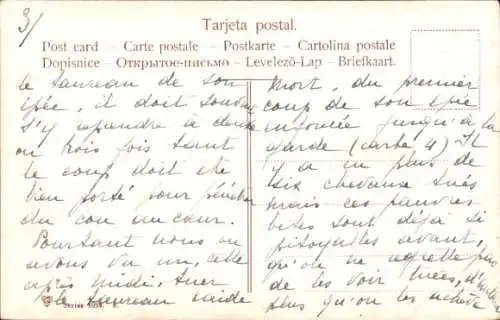 3/
Tarjeta postal.
Post card – Carte postale – Postkarte – Cartolina postale
Dopisnice – Открытое-письмо – Levelező-Lap – Briefkaart.
le taureau de son
épée, il doit souvent
s'y reprendre à deux
ou trois fois tant
le coup doit être
bien porté pour pénétrer
du cou au cœur.
Pourtant nous en
avons vu un, cette
après midi, tuer
le taureau raide
mort, du premier
coup de son épée
enfoncée jusqu'à la
garde (carte 4) Il
y a eu plus de
six chevaux tués
mais ces pauvres
bêtes sont déjà si
pitoyables avant,
qu'on ne regrette pas
de les voir tuées, d'autant
plus qu'on les achève
Series